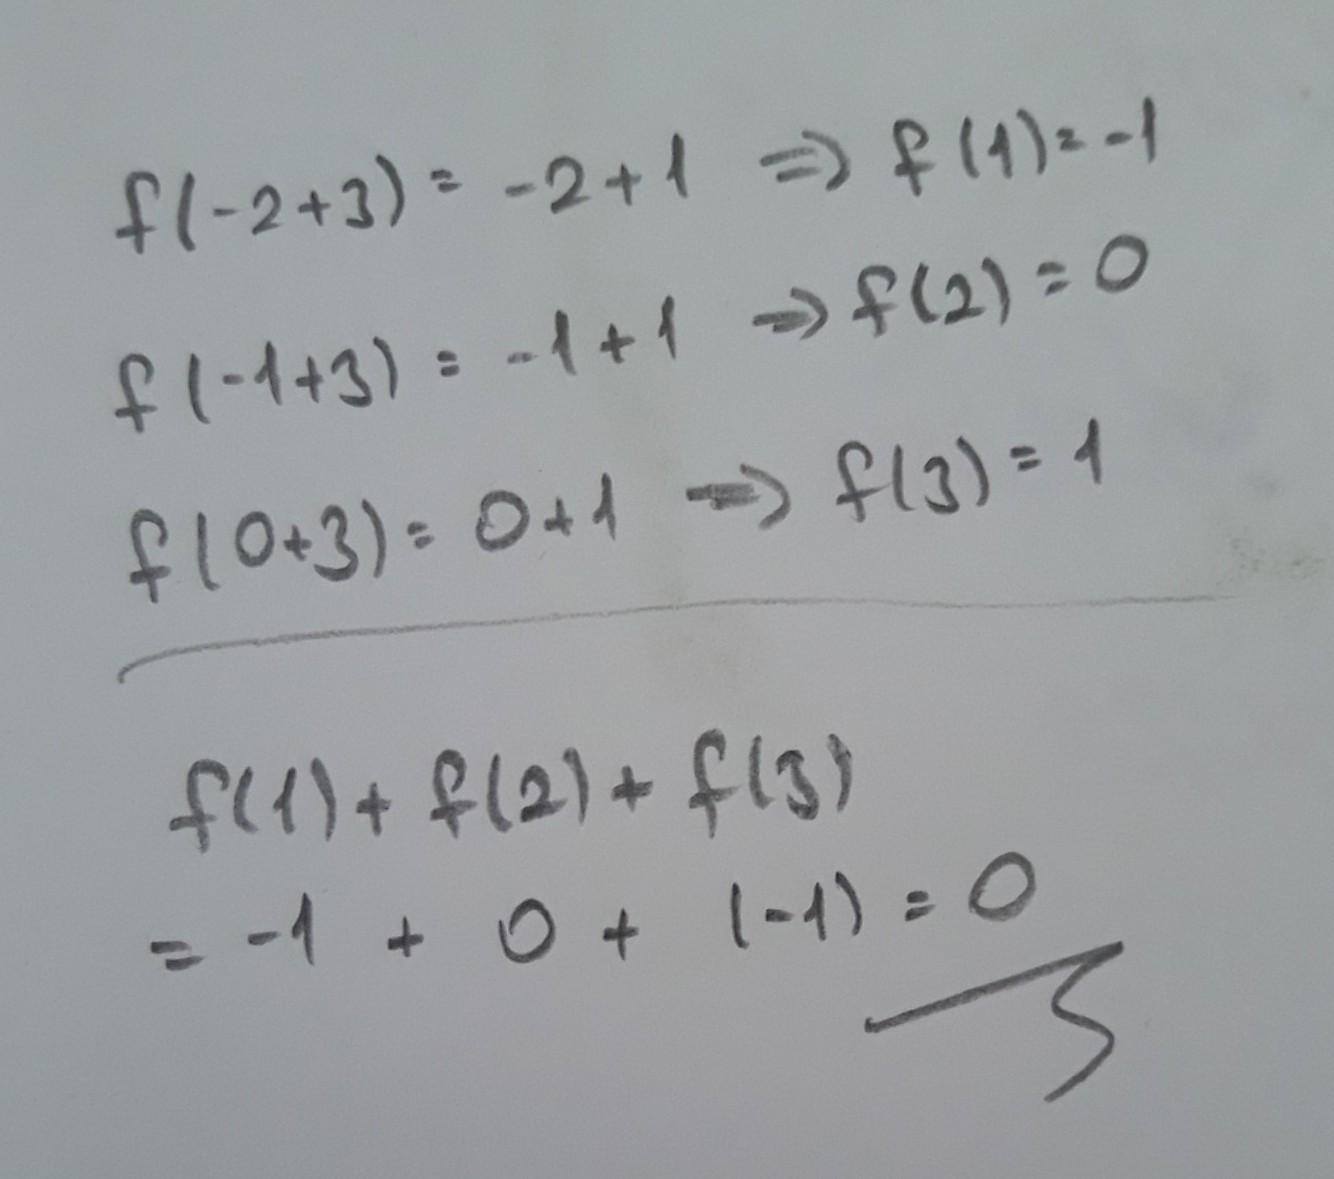 f(-2+3) = -2+1 ⇒ f(1) = -1
f(-1+3) = -1+1 ⇒ f(2) = 0
f(0+3) = 0+1 ⇒ f(3) = 1
f(1) + f(2) + f(3)
= -1 + 0 + (-1) = 0